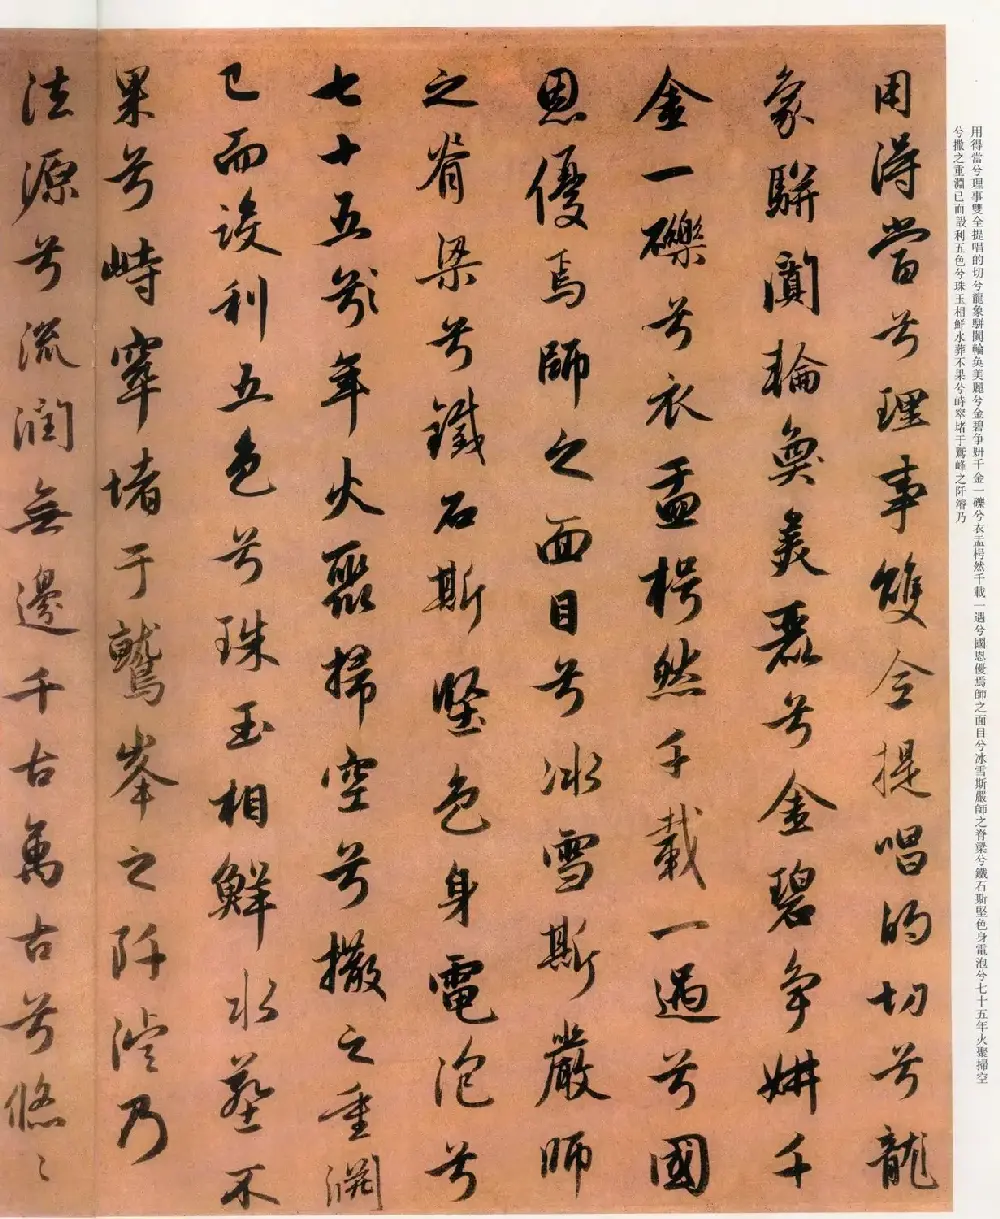 用得當兮理事雙全提唱的切兮龍象駢闐輪奐美麗兮金碧争妍千金一礫兮衣盂枵然千載一遇兮國恩優焉師之面目兮冰雪斯嚴師之脊梁兮鐵石斯堅色身電泡兮七十五年火聚掃空
兮撒之重淵已而設利五色兮珠玉相鮮水葬不果兮峙窣堵于鷲峰之阡濬乃
用得當兮理事雙全提唱的切兮龍
象駢闐輪奐美麗兮金碧争妍千
金一礫兮衣盂枵然千載一遇兮國
恩優焉師之面目兮冰雪斯嚴師
之脊梁兮鐵石斯堅色身電泡兮
七十五兮年火聚掃空兮撒之重淵
已而設利五色兮珠玉相鮮水葬不
果兮峙窣堵于鷲峯之阡濬乃
法源兮流潤無邊千古萬古兮悠〻